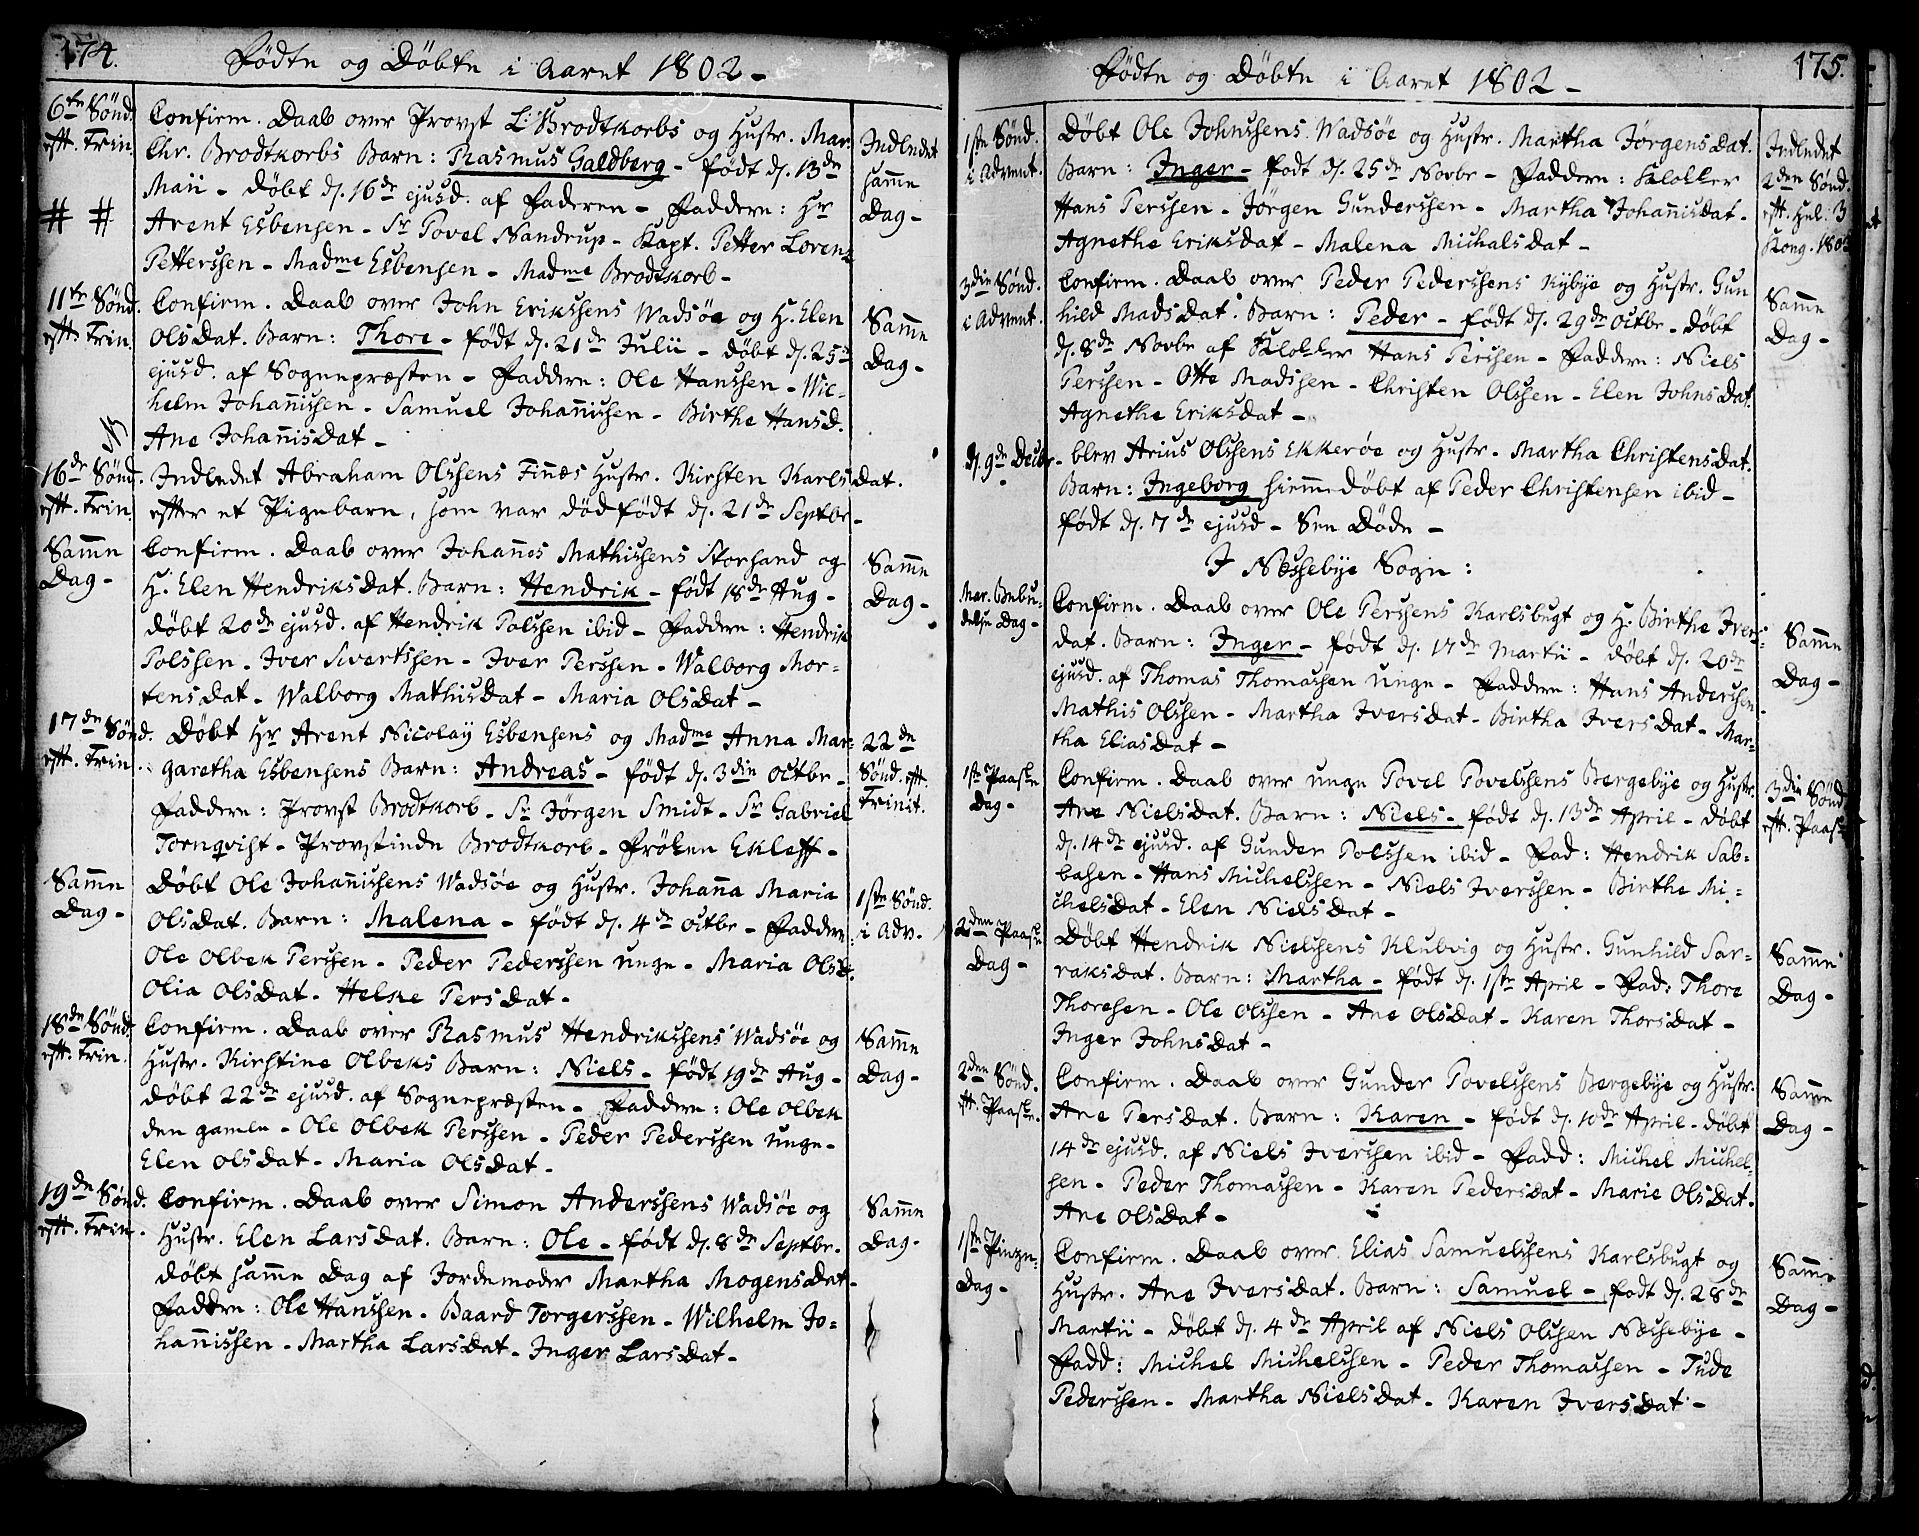 174.
Födte og Döbte i Aaret 1802 -
6te Sönd.
eft. Trin.
# #
Confirm. Daab over Provst L: Brodtkorbs og Hustr. Mar.
Chr. Brodtkorbs Barn: Rasmus Galdberg - födt d. 13de
Maii - döbt d. 16de ejusd. af Faderen - Faddere: Hr
Arent Esbensen - Sr Povel Nandrup - Kapt. Petter Lorenz
Petterssen - Madme Esbensen - Madme Brodtkorb -
Indledet
samme
Dag -
11te Sönd.
eft. Trin.
Confirm. Daab over John Erikssens Wadsöe og H. Elen
OlsDat. Barn: Thore - födt d. 21de Julii - döbt d. 25de
ejusd. af Sognepræsten - Faddere: Ole Hanssen - Wil-
helm Johannissen - Samuel Johannissen - Birthe HansD.
Ane JohannisDat -
Samme
Dag -
16de Sönd.
eft. Trin.
Indledet Abraham Olssens Finnes Hustr. Kirsten KarlsDat.
efter et Pigebarn, som var dödfödt d. 21de Septbr -
Samme
Dag -
Confirm. Daab over Johannes Mathissens Storsand og
H. Elen HendriksDat. Barn: Hendrik - födt 18de Aug -
döbt 20de ejusd. af Hendrik Polssen ibid - Faddere: Hendrik
Polssen - Iver Sivertssen - Iver Perssen - Walborg Mor-
tensDat - Walborg MathisDat - Maria OlsDat -
Samme
Dag -
17de Sönd.
eft. Trin.
Döbt Hr Arent Nicolay Esbensens og Madme Anna Mar-
garetha Esbensens Barn: Andreas - födt d. 3die Octbr -
Faddere: Provst Brodtkorb - Sr Jörgen Smidt - Sr Gabriel
Tornqvist - Provstinde Brodtkorb - Fröken Ekleff -
22de
Sönd. eft.
Trinit.
Samme
Dag -
Döbt Ole Johannissens Wadsöe og Hustr. Johanna Maria
OlsDat. Barn: Malena - födt d. 4de Octbr - Faddere:
Ole Olbek Perssen - Peder Pederssen unge - Maria OlsD.
Olia OlsDat. Helke PersDat -
1ste Sönd.
i Adv.
18de Sönd.
eft. Trin.
Confirm. Daab over Rasmus Hendrikssens Wadsöe og
Hustr. Kirstine Olbeks Barn: Niels - födt 19de Aug -
döbt 22de ejusd. af Sognepræsten - Faddere: Ole Olbek
den gamle - Ole Olbek Perssen - Peder Pederssen unge -
Elen OlsDat - Maria OlsDat -
Samme
Dag -
19de Sönd.
eft. Trin.
Confirm. Daab over Simon Anderssens Wadsöe og
Hustr. Elen LarsDat. Barn: Ole - födt d. 8de Septbr.
döbt samme Dag af Jordemoder Martha MogensDat -
Faddere: Ole Hanssen - Baard Torgerssen - Wilhelm Jo-
hannissen - Martha LarsDat - Inger LarsDat -
Samme
Dag -
175.
Födte og Döbte i Aaret 1802 -
1ste Sönd.
i Advent.
Döbt Ole Johnssens Wadsöe og Hustr. Martha JörgensDat.
Barn: Inger - födt d. 25de Novbr - Faddere: Klokker
Hans Perssen - Jörgen Gunderssen - Martha JohannisDat -
Agnethe EriksDat - Malena MichalsDat -
Indledet
2den Sönd.
eft. Hel. 3
Kong. 1803
3die Sönd.
i Advent.
Confirm. Daab over Peder Pederssens Kybye og Hustr. Gun
hild MadsDat. Barn: Peder - födt d. 29de Octbr - döbt
d. 8de Novbr af Klokker Hans Perssen - Faddere: Niels
Perssen - Otte Madssen - Christen Olssen - Elen JohnsDat.
Agnethe EriksDat -
Samme
Dag -
d. 9de Decbr -
blev Arius Olssens Ekkeröe og Hustr. Martha ChristensDat.
Barn: Ingeborg hiemmedöbt af Peder Christensen ibid -
födt d. 7de ejusd - Sen Döde -
I Næssebye Sogn:
Mar. Bebu-
delse Dag -
Confirm. Daab over Ole Perssens Karlsbugt og H. Birthe Ivers-
dat. Barn: Inger - födt d. 17de Martii - döbt d. 20de
ejusd. af Thomas Thomassen unge - Faddere: Hans Anderssen
Mathis Olssen - Martha IversDat - Birtha IversDat - Mar-
tha EliasDat -
Samme
Dag -
1ste Paaske
Dag -
Confirm. Daab over unge Povel Povelssens Bergebye og Hustr.
Ane NielsDat. Barn: Niels - födt d. 13de April - döbt
d. 14de ejusd. af Gunder Polssen ibid - Fad: Hendrik Sab-
basen - Hans Michelssen - Niels Iverssen - Birthe Mi-
chelsDat - Elen NielsDat -
3die Sönd
eft. Paaske
2den Paaske
Dag -
Döbt Hendrik Nielssens Klubvig og Hustr. Gunhild Sar-
raksDat. Barn: Martha - födt d. 1ste April - Fad: Thore
Thoresen - Ole Olssen - Ane OlsDat - Karen ThorsDat -
Inger JohnsDat -
Samme
Dag -
2den Sönd.
eft. Paaske.
Confirm. Daab over Gunder Povelssens Bergebye og Hustr.
Ane PersDat. Barn: Karen - födt d. 10de April - döbt
14de ejusd. af Niels Iverssen ibid - Fadd: Michel Michel-
sen - Peder Thomassen - Karen PedersDat - Marie OlsDat.
Ane OlsDat -
Samme
Dag -
1ste Pintze-
Dag -
Confirm. Daab over Elias Samuelssens Karlsbugt og
Hustr. Ane IversDat. Barn: Samuel - födt d. 28de
Martii - döbt d. 4de April af Niels Olssen Næssebye -
Fadd: Michel Michelssen - Peder Thomassen - Tude
Pederssen - Martha NielsDat - Karen IversDat -
Samme
Dag -